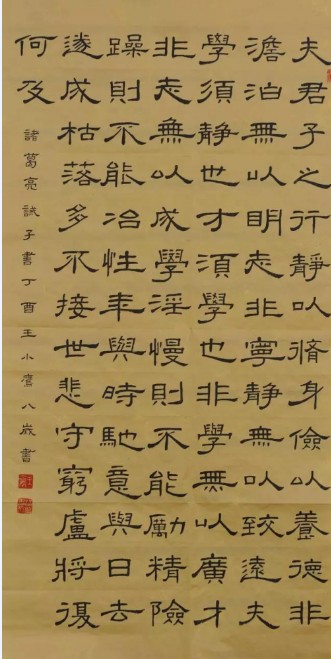 夫君子之行靜以脩身儉以養德非
澹泊無以明志非寧靜無以致遠夫
學須靜也才須學也非學無以廣才
非志無以成學淫慢則不能勵精險
躁則不能冶性年與時馳意與日去
遂成枯落多不接世悲守窮盧將復
何及
諸葛亮誡子書丁酉王小八歲書